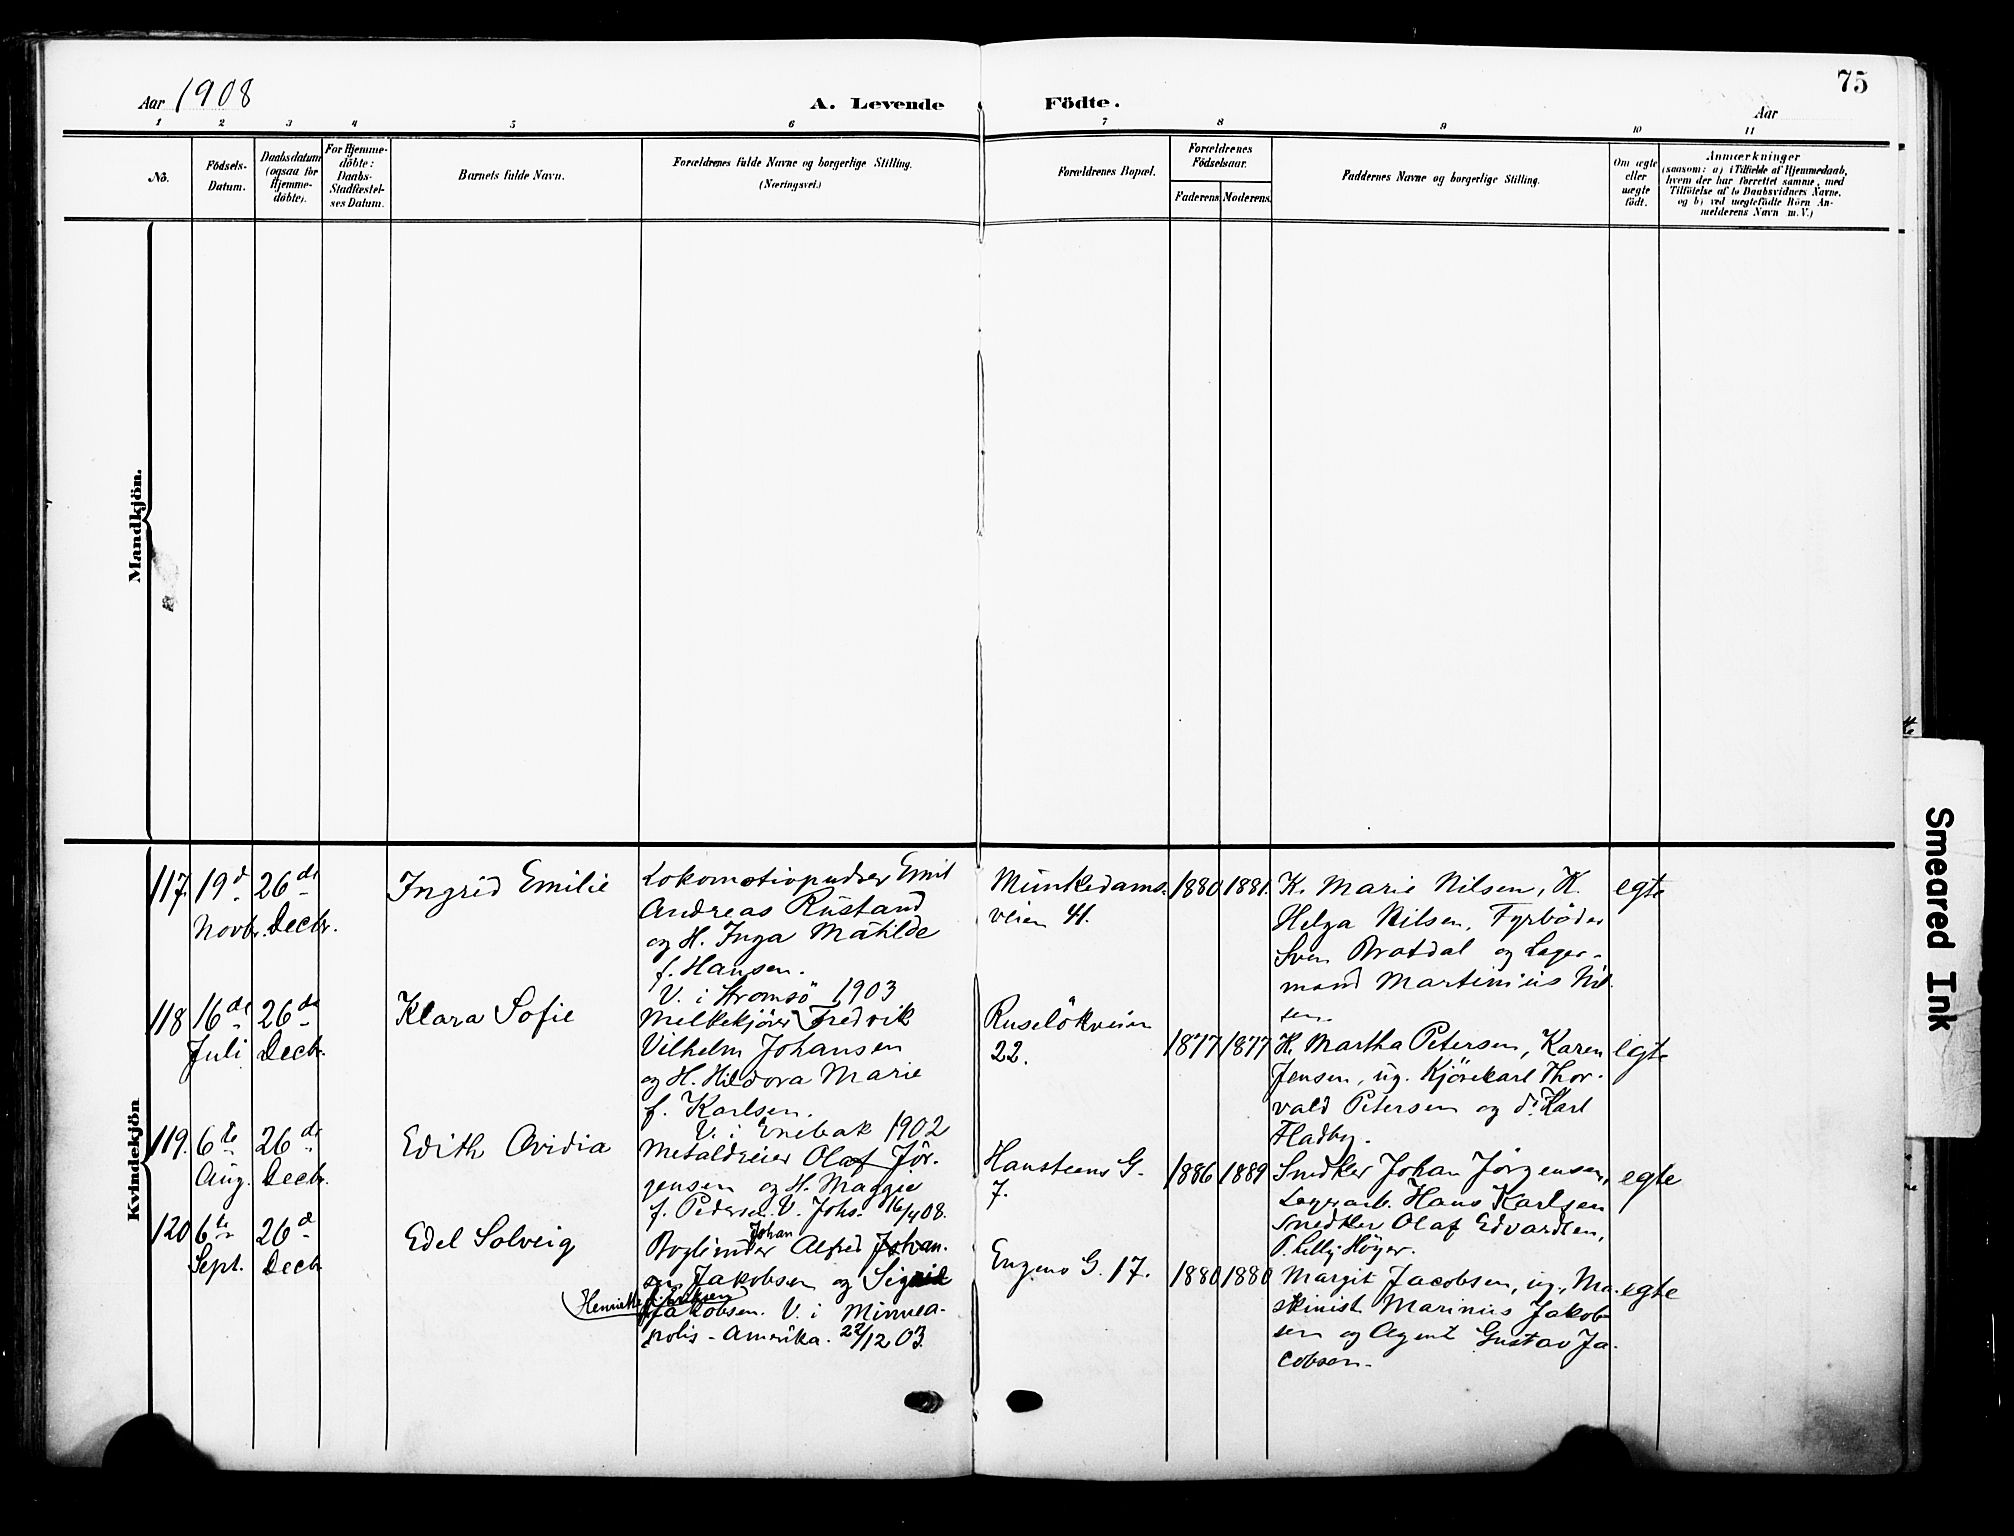 75
Aar 1908
A. Levende Födte.
Aar
1 2 3 4 5 6 7 8 9 10 11
No.
Födsels-
Datum.
Daabsdatum
(ogsaa for
Hjemme-
döbte).
For Hjemme-
döbte:
Daabs-
Stadfæstel-
ses Datum.
Barnets fulde Navn.
Forældrenes fulde Navne og borgerlige Stilling.
(Næringsvei.)
Forældrenes Bopæl.
Forældrenes
Födselsaar.
Faderens Moderens
Faddernes Navne og borgerlige Stilling.
Om ægte
eller
uægte
födt.
Anmærkninger
(saasom: a) i Tilfælde af Hjemmedaab,
hvem der har forrettet samme, med
Tilföielse af to Daabsvidners Navne,
og b) ved uægtefödte Börn An-
melderens Navn m. V.)
Mandkjön.
Kvindekjön
117.
19d
Novbr.
26de
Decbr.
Ingrid Emilie
Lokomotivpudser Emil
Andreas Rustand
og H. Inga Matilde
f. Hansen.
V. i Stromsö 1903
Munkedams-
veien 41.
1880
1881.
K. Marie Nilsen, K.
Helga Nilsen, Fyrböder
Sven Bratdal og Lager-
mand Martinius Nil-
sen.
egte
118
16de
Juli
26de
Decbr.
Klara Sofie
Melkekjörer Fredrik
Vilhelm Johansen
og H. Hildora Marie
f. Karlsen.
V. i Enebak 1902
Ruselökveien
22.
1877
1877
K. Martha Petersen, Karen
Jensen, ug. Kjörekarl Thor-
vald Petersen og do Karl
Fladby.
egte
119.
6te
Aug.
26de
Decbr.
Edith Ovidia
Metaldreier Olaf Jör-
gensen og H. Maggie
f. Pedersen. V. Johs. 16/4 08.
Hansteens G.
7.
1886
1889
Snedker Johan Jörgensen,
Lagerarb. Hans Karlsen
Snedker Olaf Edvardsen,
P. Lilly Höyer.
egte
120
6te
Sept.
26d
Decbr
Edel Solveig
Johan
Bogbinder Alfred Johan-
sen Jakobsen og Sigrid
Henriette f. Eriksen
Jakobsen. V. i Minnea-
polis - Amerika. 22/12 03.
Eugens G. 17.
1880
1880
Margit Jacobsen, ug., Ma-
skinist Marinius Jakob-
sen og Agent Gustav Ja-
cobsen.
egte
Smeared Ink